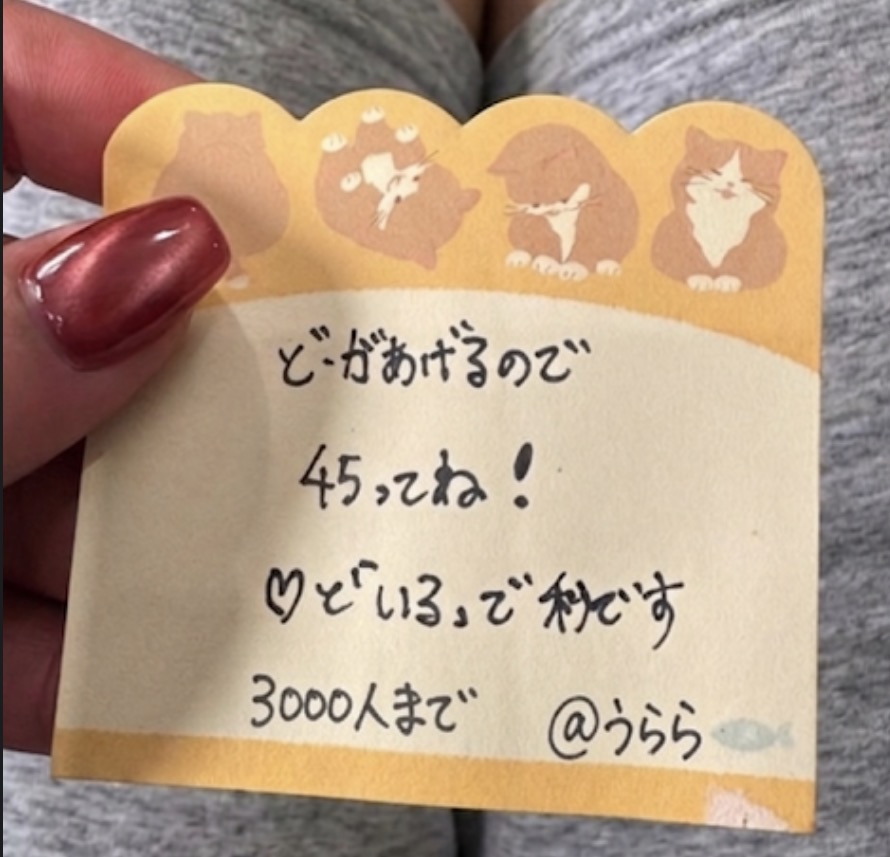 どーがあげるので
45ってね！
♡どいるって秒です
3000人まで @うらら